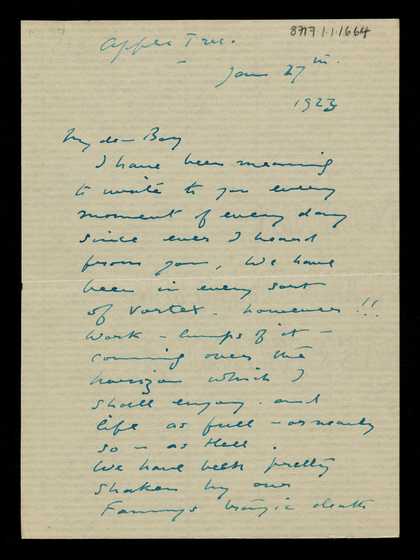 8717.1.1.664
Apple Tree.
Jan 27th.
1923
My dear Boy
I have been meaning
to write to you every
moment of every day
since ever I heard
from you, We have
been in every sort
of vortex - however!!
Work - lumps of it -
coming over the
horizon which I
shall enjoy. and
life as full - or nearly
so - as Hell.
We have been pretty
shaken by our
Fannys tragic death